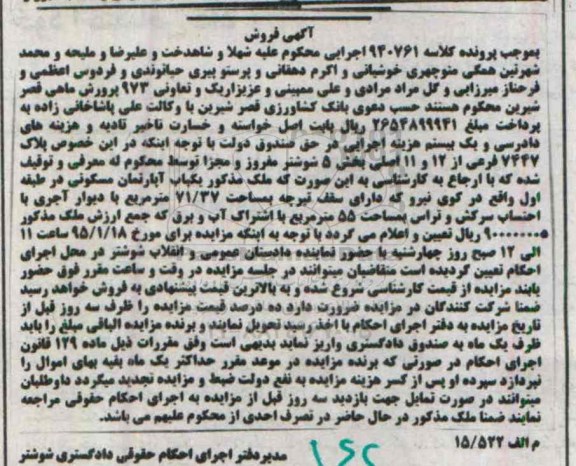 آگهی فروش
بموجب پرونده کلاسه ۹۴۰۷۶۱ اجرایی محکوم علیه شهلا و شاهدخت و علیرضا و ملیحه و محمد
شهرتین همگی منوچهری خوشیانی و اکرم دهقانی و پرستو پیری حیانوندی و فردوس اعظمی و
فرحناز میرزایی و گل مراد مرادی و علی ممبینی و عزیزاریک و تعاونی ۹۷۳ پرورش ماهی قصر
شیرین محکوم هستند حسب دعوی بانک کشاورزی قصر شیرین با وکالت علی پاشاخانی زاده به
پرداخت مبلغ ۲۶۵۴۸۹۹۹۴۱ ریال بابت اصل خواسته و خسارت تاخیر تادیه و هزینه های
دادرسی و یک بیستم هزینه اجرایی در حق صندوق دولت با توجه اینکه در این خصوص پلاک
۷۴۴۷ فرعی از ۱۲ و ۱۱ اصلی بخش ۵ شوشتر مفروز و مجزا توسط محکوم له معرفی و توقیف
شده که با ارجاع به کارشناسی به این صورت که ملک مذکور یکباب آپارتمان مسکونی در طبقه
اول واقع در کوی نیرو که دارای سقف تیرچه بمساحت ۷۱/۳۷ مترمربع با دیوار آجری با
احتساب سرکش و تراس بمساحت ۵۵ مترمربع با اشتراک آب و برق که جمع ارزش ملک مذکور
ریال تعیین و اعلام می گردد با توجه به اینکه مزایده برای مورخ ۹۵/۱/۱۸ ساعت ۱۱
الی ۱۲ صبح روز چهارشنبه با حضور نماینده دادستان عمومی و انقلاب شوشتر در محل اجرای
احکام تعیین گردیده است متقاضیان میتوانند در جلسه مزایده در وقت و ساعت مقرر فوق حضور
یابند مزایده از قیمت کارشناسی شروع شده و به بالاترین قیمت پیشنهادی به فروش خواهد رسید
ضمنا شرکت کنندگان در مزایده ضرورت دارد ده درصد قیمت مزایده را ظرف سه روز قبل از
تاریخ مزایده به دفتر اجرای احکام با اخذ رسید تحویل نمایند و برنده مزایده الباقی مبلغ را باید
ظرف یک ماه به صندوق دادگستری واریز نماید بدیهی است وفق مقررات ذیل ماده ۱۲۹ قانون
اجرای احکام در صورتی که برنده مزایده در موعد مقرر حداکثر یک ماه بقیه بهای اموال را
نپردازد سپرده او پس از کسر هزینه مزایده به نفع دولت ضبط و مزایده تجدید میگردد داوطلبان
میتوانند در صورت تمایل جهت بازدید سه روز قبل از مزایده به اجرای احکام حقوقی مراجعه
نمایند ضمنا ملک مذکور در حال حاضر در تصرف احدی از محکوم علیهم می باشد.
م الف ۱۵/۵۲۲
مدیر دفتر اجرای احکام حقوقی دادگستری شوشتر